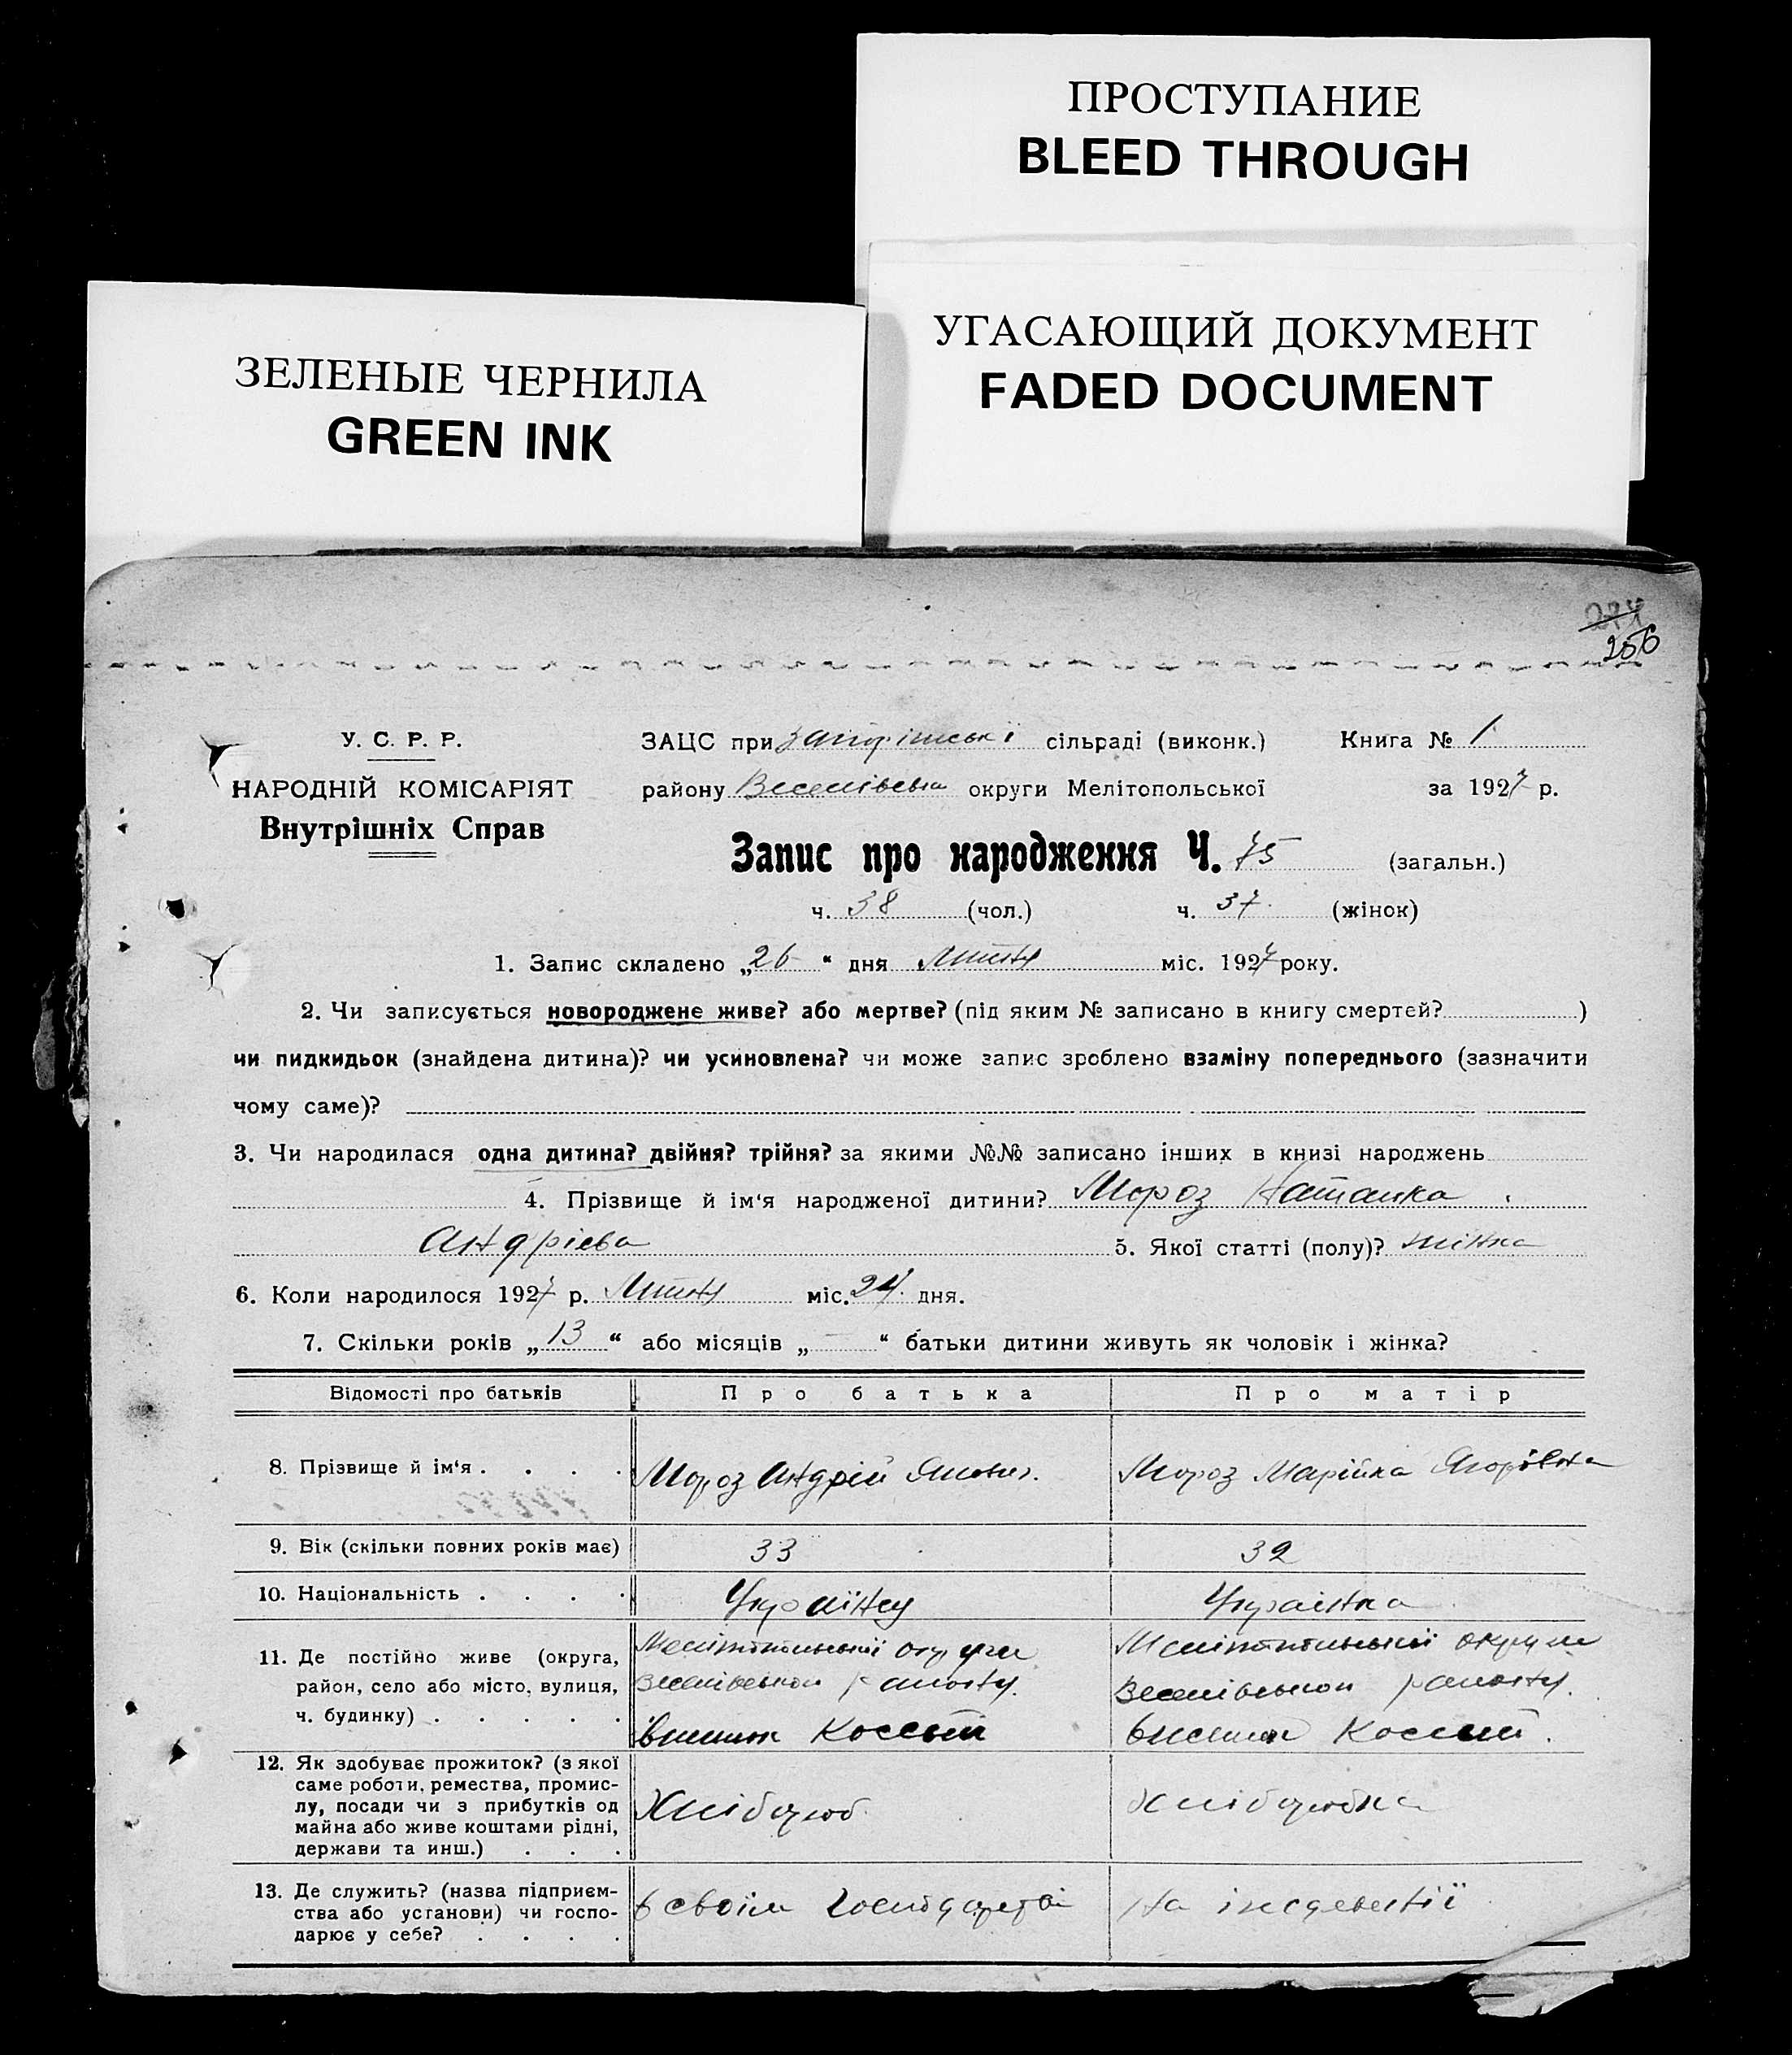 ПРОСТУПАНИЕ
BLEED THROUGH
УГАСАЮЩИЙ ДОКУМЕНТ
FADED DOCUMENT
ЗЕЛЕНЫЕ ЧЕРНИЛА
GREEN INK
256
У. С. Р. Р.
НАРОДНІЙ КОМІСАРІЯТ
Внутрішніх Справ
ЗАЦС при сільраді (виконк.) Книга № 1
району округи Мелітопольської за 1927 р.
Запис про народження Ч. 75 (загальн.)
ч. 38 (чол.) ч. 37 (жінок)
1. Запис складено „26“ дня Липня міс. 1927 року.
2. Чи записується новороджене живе? або мертве? (під яким № записано в книгу смертей? )
чи пидкидьок (знайдена дитина)? чи усиновлена? чи може запис зроблено взаміну попереднього (зазначити
чому саме)?
3. Чи народилася одна дитина? двійня? трійня? за якими №№ записано інших в книзі народжень
4. Прізвище й ім'я народженої дитини? Мороз Наталка
Андрієва 5. Якої статті (полу)? жінка
6. Коли народилося 1927 р. Липня міс. 24 дня.
7. Скільки років „13“ або місяців „—“ батьки дитини живуть як чоловік і жінка?
Відомості про батьків Про батька Про матір
8. Прізвище й ім'я . . . . Мороз Андрій Мороз Марійка
9. Вік (скільки повних років має) 33 32
10. Національність . . . . Українец Українка
11. Де постійно живе (округа,
район, село або місто, вулиця,
ч. будинку) . . . . .
Мелітопольської округи Мелітопольської округи
району. району.
12. Як здобуває прожиток? (з якої
саме роботи, ремества, промис-
лу, посади чи з прибутків од
майна або живе коштами рідні,
держави та инш.) . . .
Хлібороб Хліборобка
13. Де служить? (назва підприєм-
ства або установи) чи госпо-
дарює у себе? . . . .
в своїм господарстві На